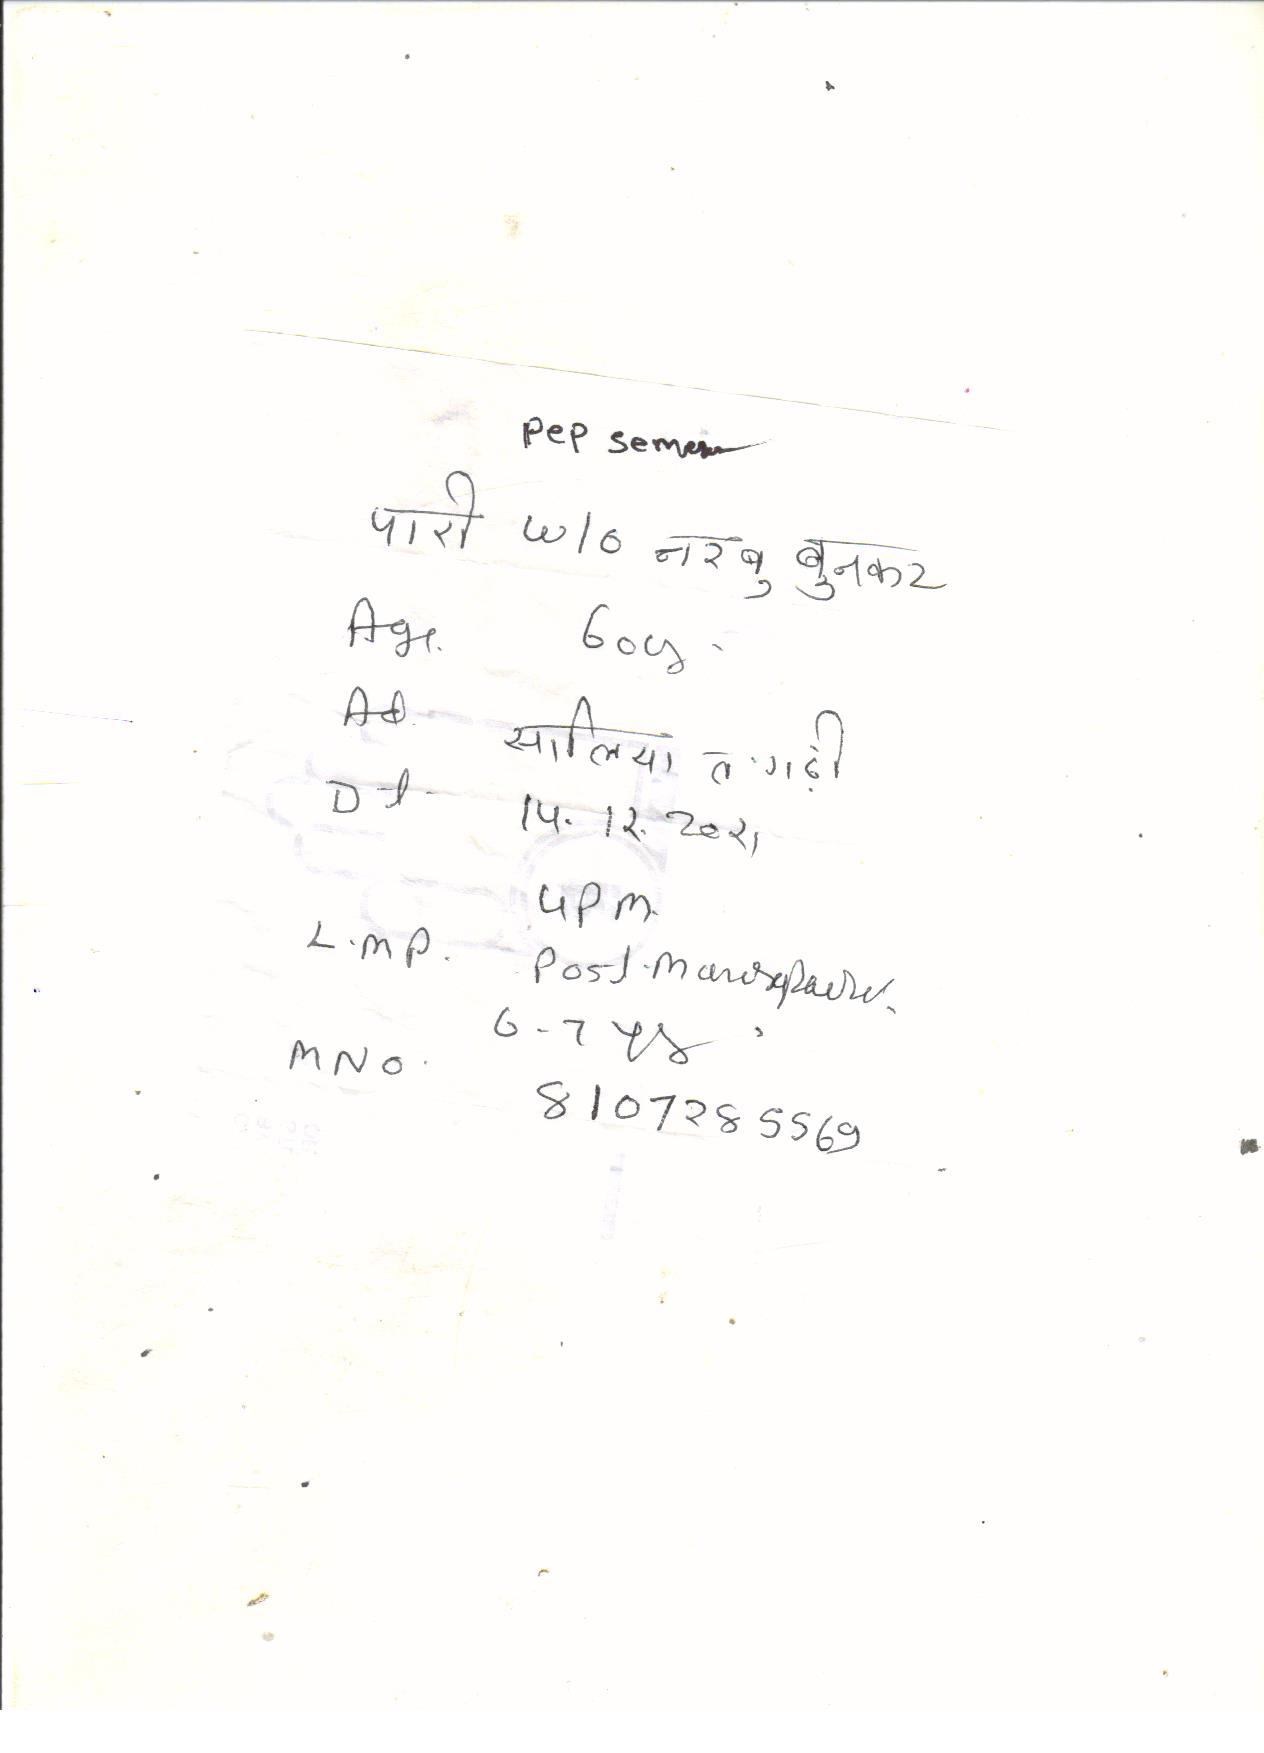 PEP semear
पारी w/o नरबु बुनकर
Age. 60y.
Ad. सालिया त. गढ़ी
Dt. 14.12.2021
4PM.
L.M.P. Post.
6-7 yrs
MNO. 8107285569